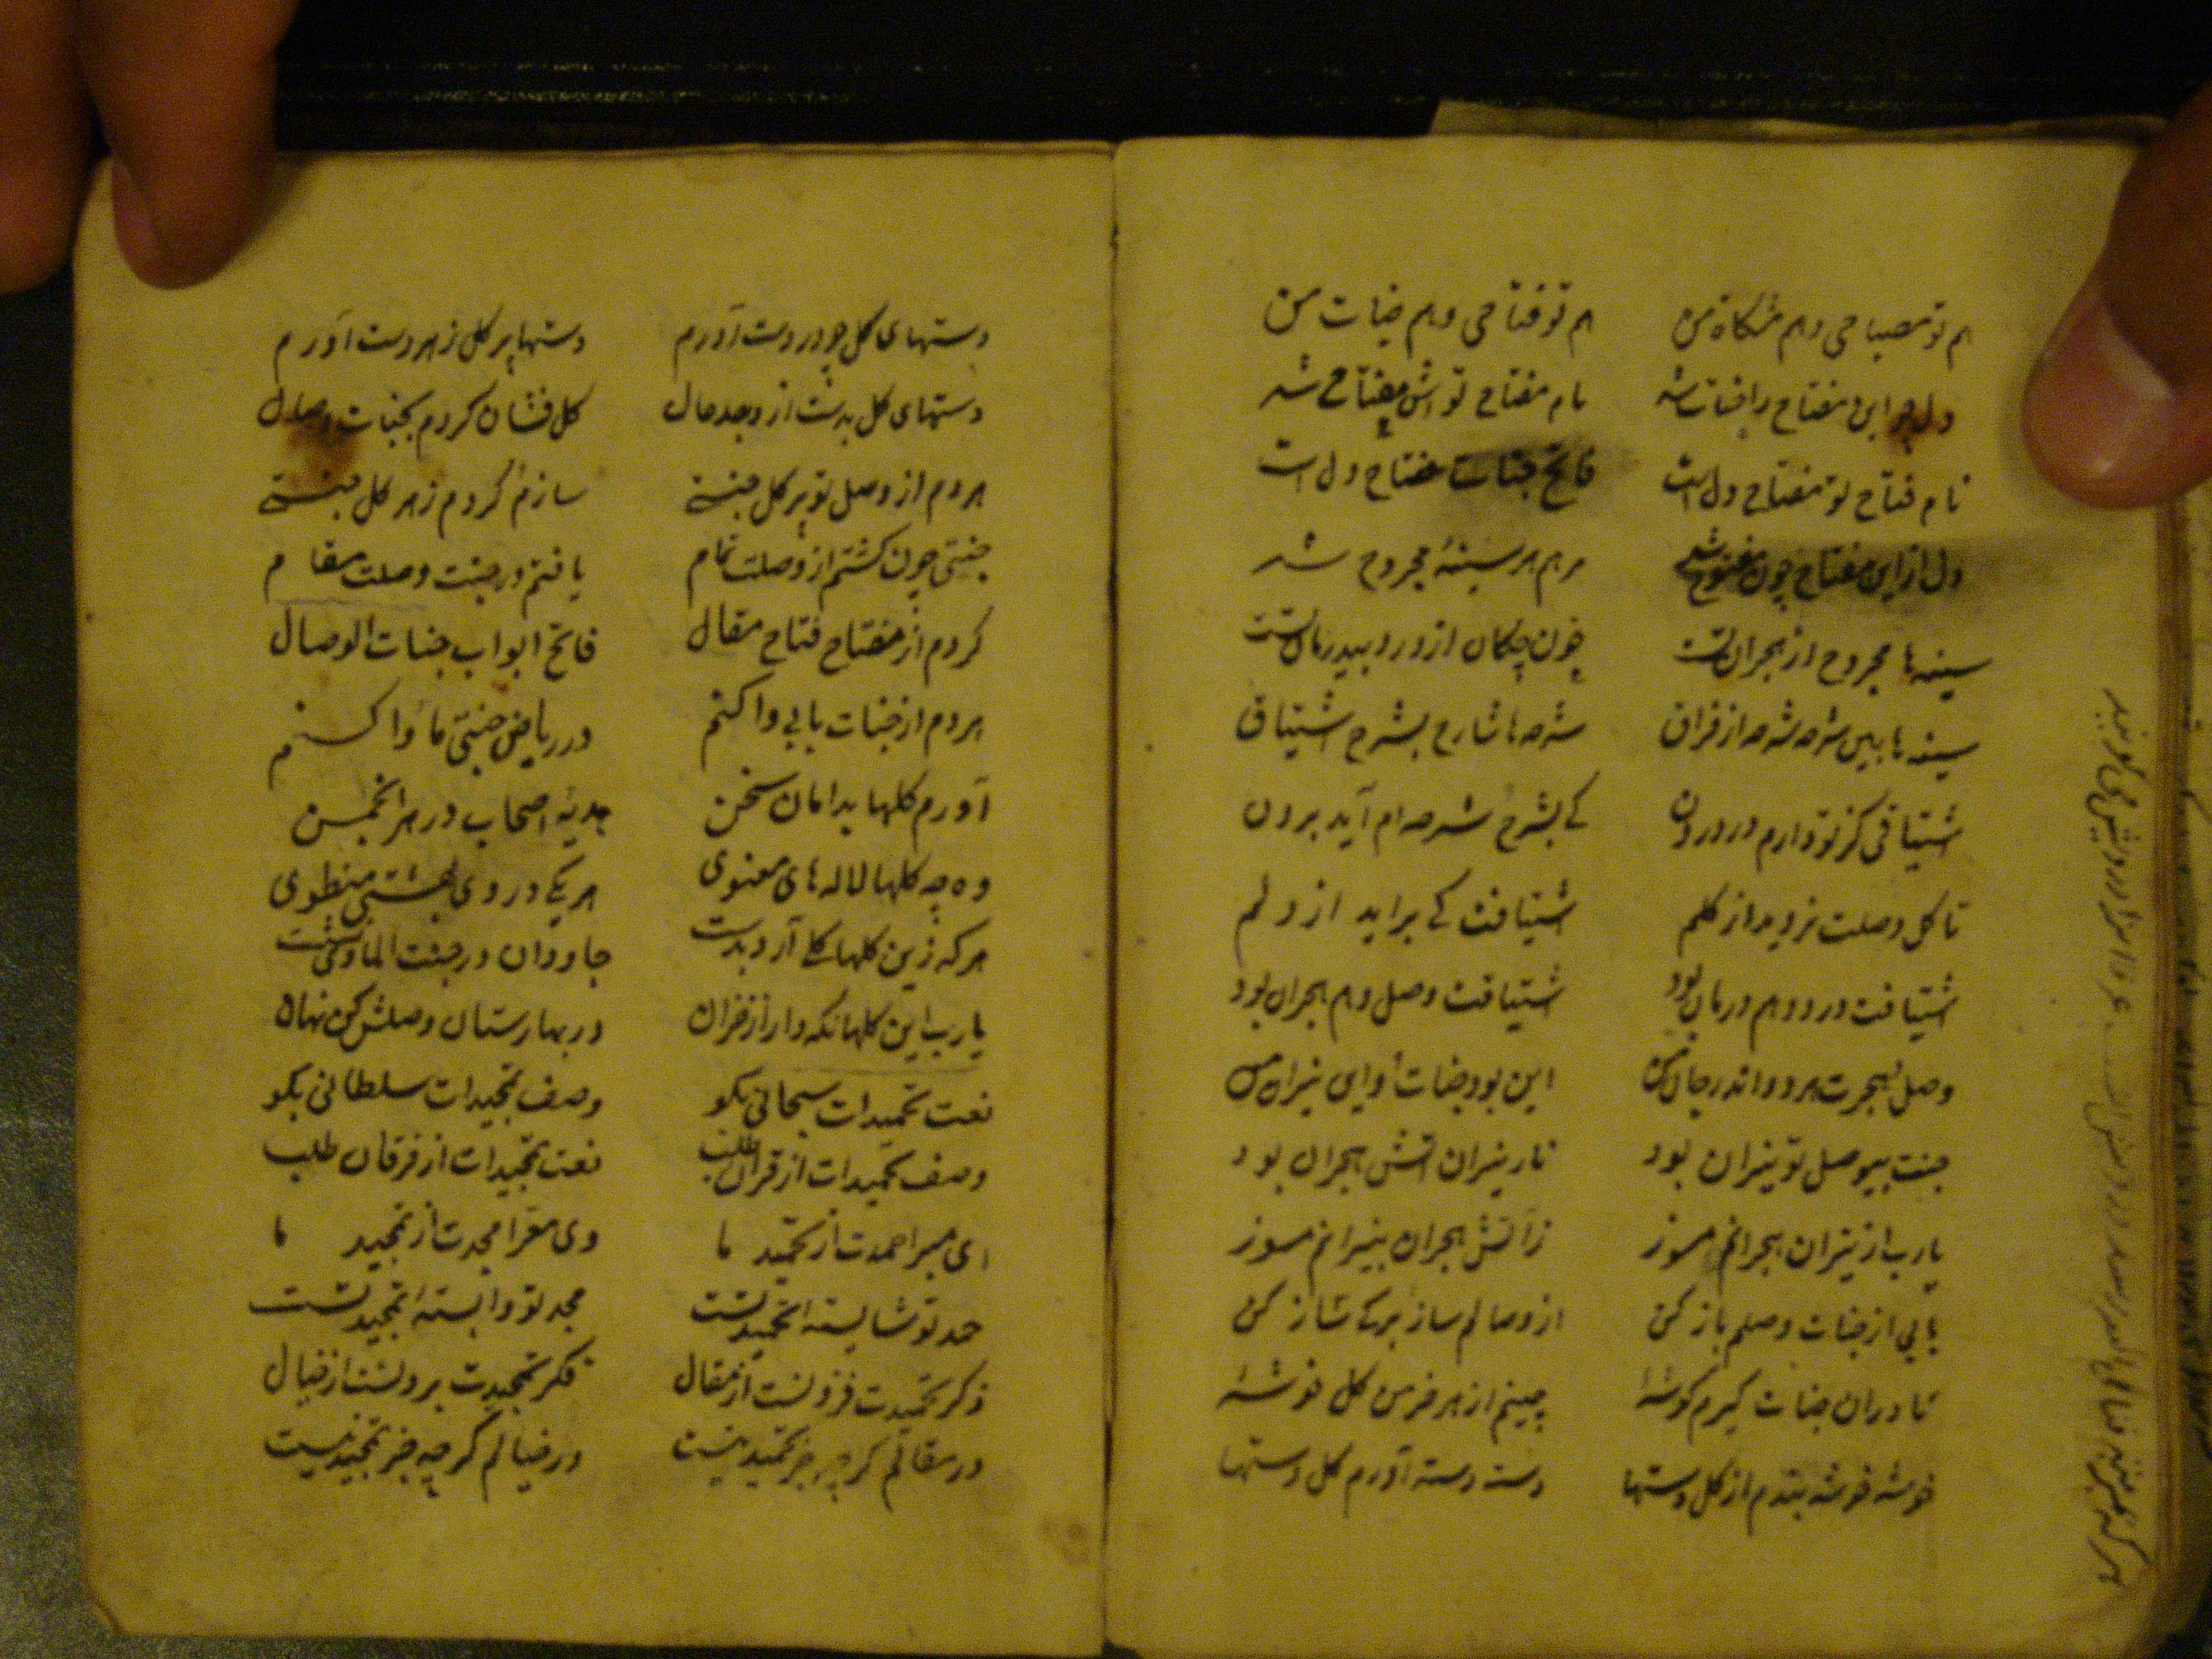 هم تو مصباحی و هم مشکاة من هم تو فتاحی و هم جنات من
دل چو این مفتاح را جنات شد نام مفتاح تو اش مفتاح شد
نام فتاح تو مفتاح دل است فاتح جنات مفتاح دل است
دل ازین مفتاح چون مفتوح شد مرهم هر سینهٔ مجروح شد
سینه ها مجروح از هجران تست خون چکان از درد بیدرمان تست
سینه ها بین شرحه شرحه از فراق شرحه ها شارح بشرح اشتیاق
اشتیاقی کز تو دارم در درون کے بشرح شرحه ام آید برون
تا گل وصلت نروید از گلم اشتیاقت کے براید از دلم
اشتیاقت درد و هم درمان بود اشتیاقت وصل و هم هجران بود
وصل و هجرت هر دو اندر جان من این بود جنات و این نیران من
جنت بیوصل تو نیران بود نار نیران آتش هجران بود
یارب از نیران هجرانم مسوز ز آتش هجران بنیرانم مسوز
بابی از جنات وصلم باز کن از وصالم ساز برگ ساز کن
تا در ان جنات گیرم گوشهٔ چینم از هر خرمن گل خوشهٔ
خوشه خوشه بندم از گل دستها دسته دسته آورم گل دستها
دستهای گل چو در دست آورم دستها پر گل ز هر دست آورم
دستهای گل بدست از وجد و حال گل فشان کردم بجنات وصال
هر دم از وصل تو بر گل جنتے سازم و گردم ز هر گل جنتے
جنتی چون گشتم از وصلت تمام یافتم در جنت وصلت مقام
کردم از مفتاح فتاح مقال فاتح ابواب جنات الوصال
هر دم از جنات بابی وا کنم در ریاض جنتی ماوا کنم
آورم گلها بدامان سخن هدیهٔ اصحاب در هر انجمن
وه چه گلها لاله های معنوی هر یکے در وی بهشتی منطوی
هر که زین گلها گلے آرد بدست جاودان در جنت الماوی نشست
یارب این گلها نگهدار از خزان در بهارستان وصلش کن نهان
نعت تحمیدات سبحانی بگو وصف تمجیدات سلطانی بگو
وصف تحمیدات از قرآن طلب نعت تمجیدات از فرقان طلب
ای مبرا حمدت از تحمید ما وی معرا مجدت از تمجید ما
حمد تو شایستهٔ تحمید تست مجد تو وابستهٔ تمجید تست
ذکر تحمیدت فزونست از مقال فکر تمجیدت برونست از خیال
در مقالم گر چه جز تحمید نیست در خیالم گر چه جز تمجید نیست